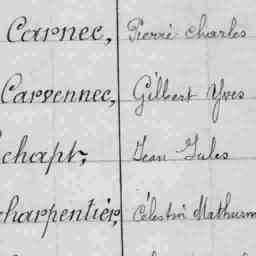 Carnec, Pierre Charles
Carvennec, Gilbert Yves
Chapt, Jean Jules
Charpentier, Célestin Mathurin